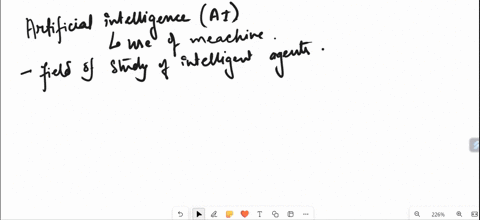 Artificial intelligence (AI)
↳ use of meachine.
- field of study of intelligent agents.
226%